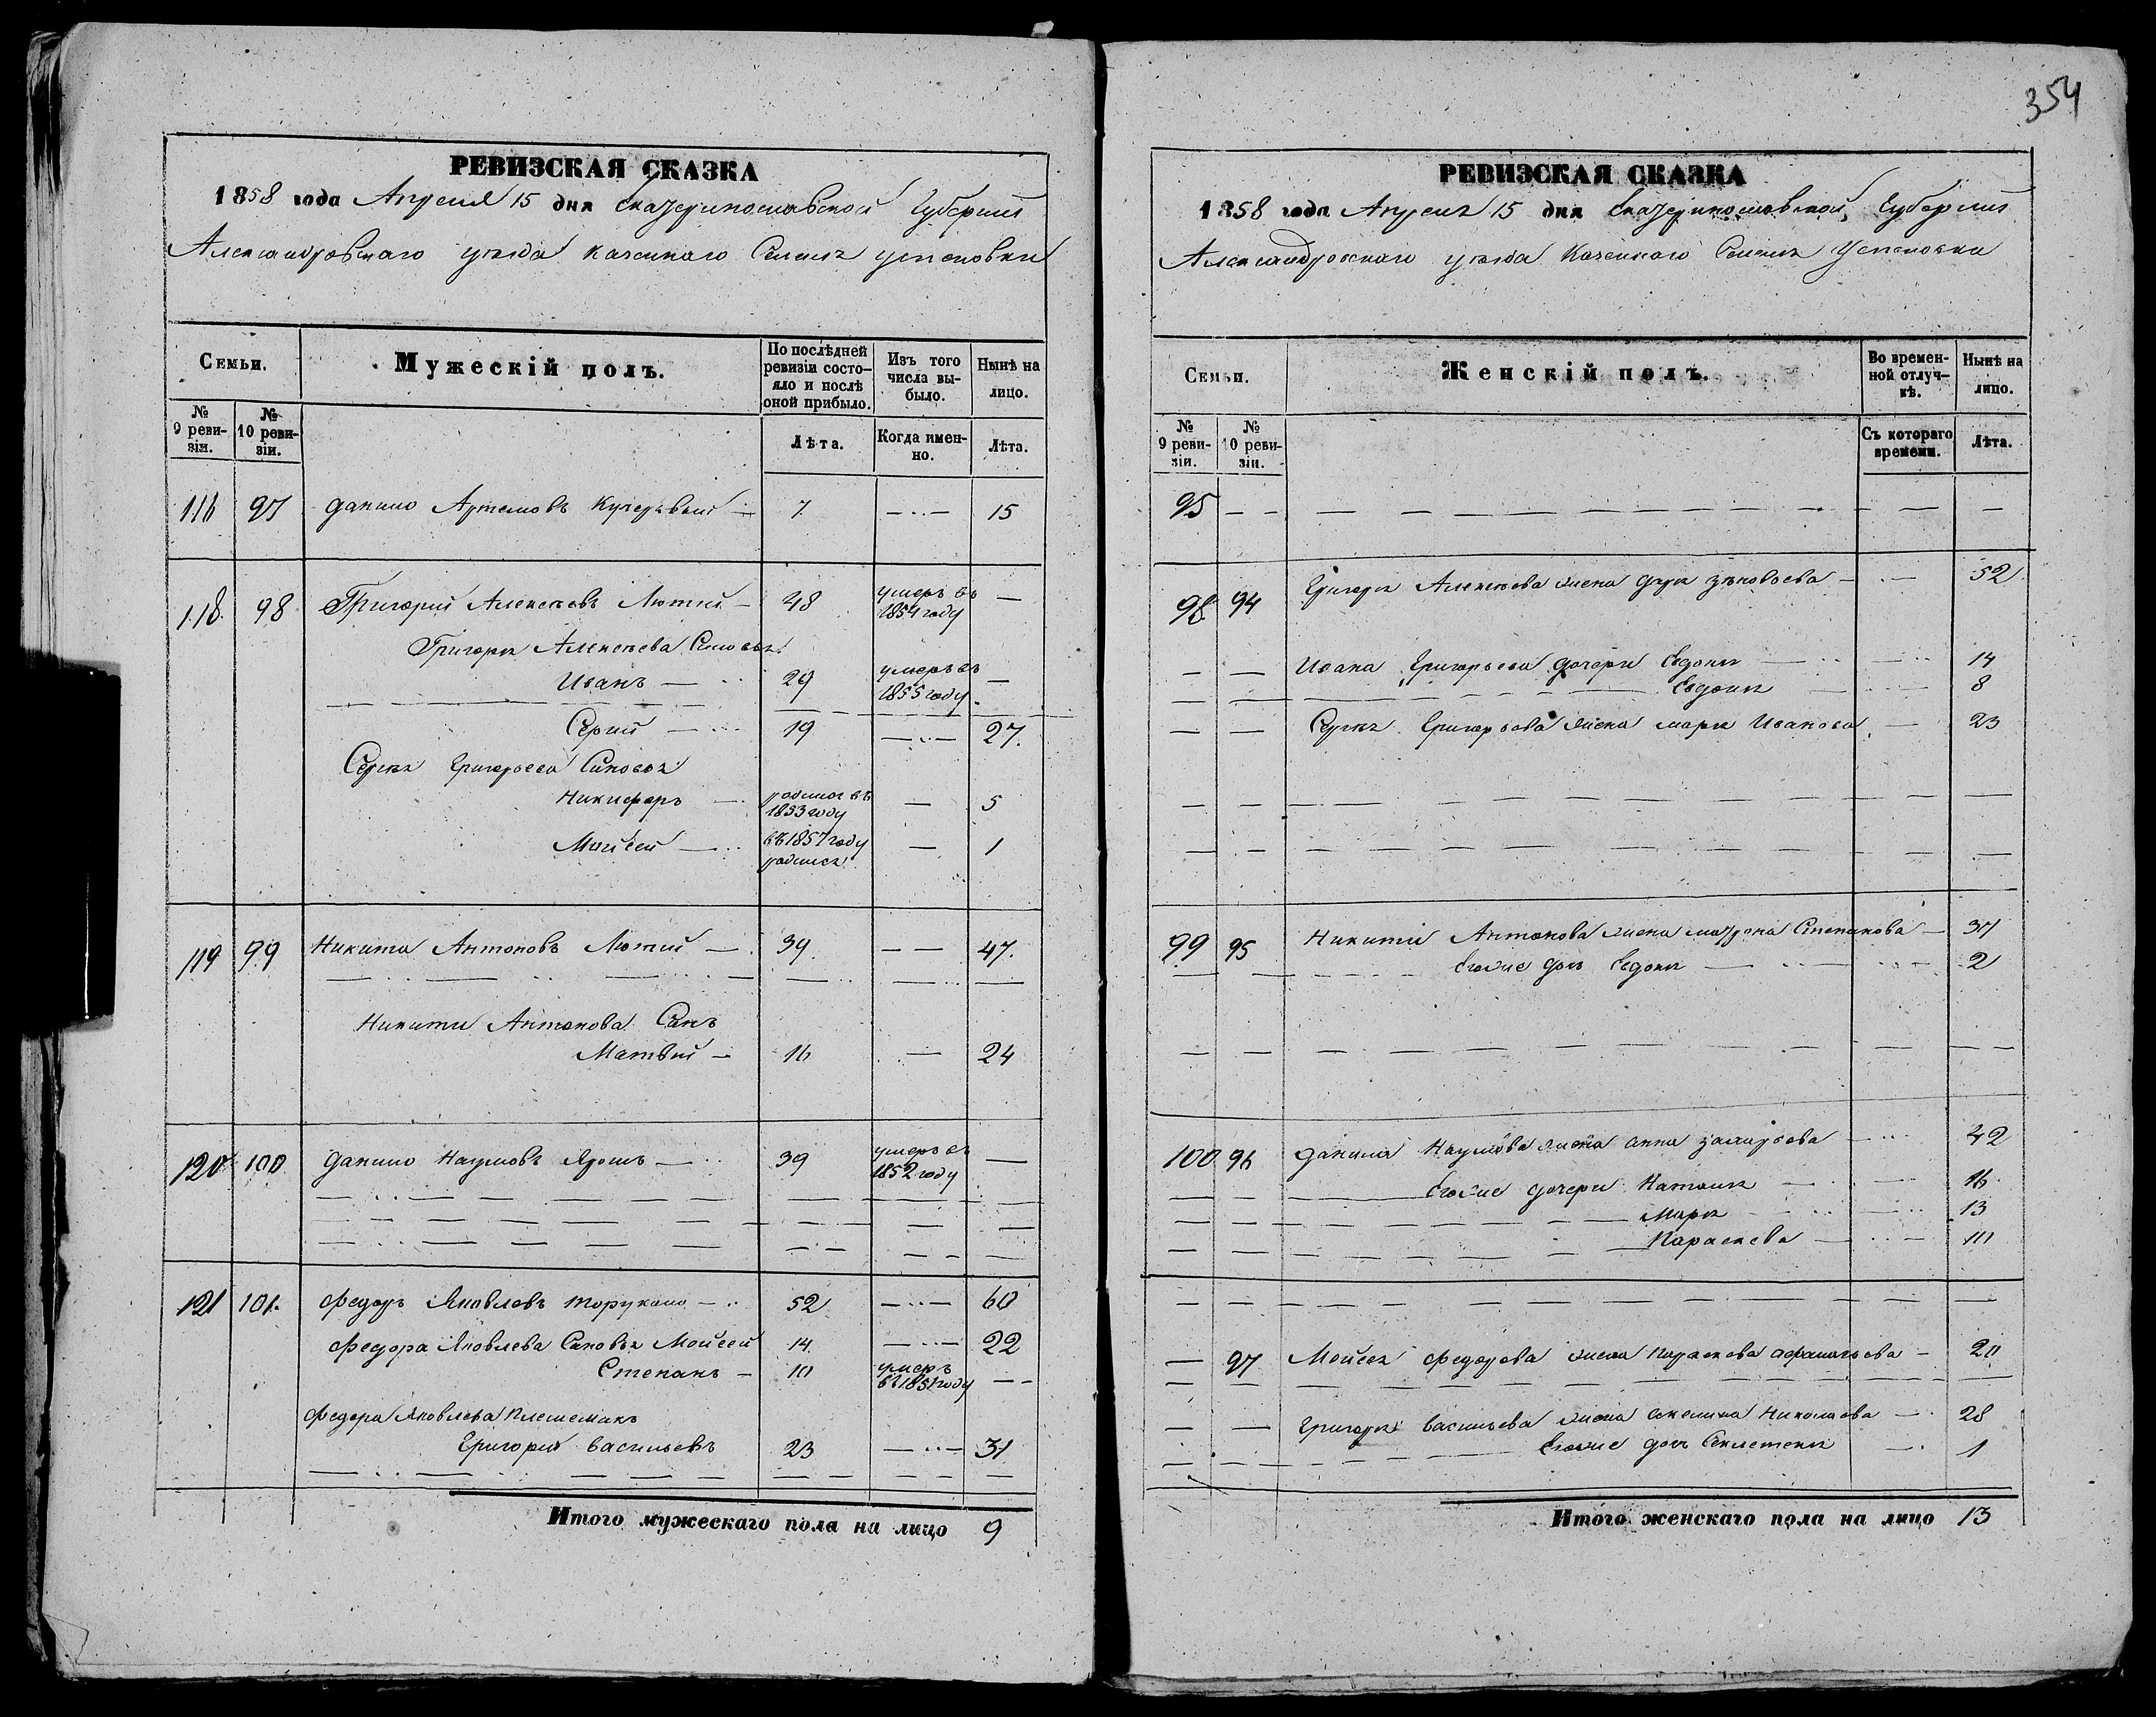 РЕВИЗСКАЯ СКАЗКА
1858 года Апреля 15 дня Екатеринославской Губернии
Александровского уезда казенного Селенія Успеновки
Семьи.
Мужескій полъ.
По послѣдней ревизіи состояло и послѣ оной прибыло.
Изъ того числа выбыло.
Нынѣ на лицо.
№ 9 ревизіи.
№ 10 ревизіи.
Лѣта.
Когда именно.
Лѣта.
116 97 Данило Артемовъ Кучерявый 7 15
118. 98 Григорий Алексеевъ Лютый 48 умеръ въ 1854 году
Григорія Алексеева Сыновья
Иванъ 29 умеръ въ 1855 году
Сергий 19 27.
Сергия Григорьева Сыновья
Никифоръ родился въ 1853 году 5
Мойсей въ 1857 году родился 1
119 99 Никита Антоновъ Лютий 39. 47.
Никити Антонова Сынъ
Матвій 16 24
120 100. Данило Наумовъ Ярошъ 39 умеръ въ 1852 году
121 101. Федоръ Яковлевъ 52 60
Федора Яковлева Сыновья Мойсей 14. 22
Степанъ 10 умеръ въ 1851 году
Федора Яковлева племемикъ
Григорий Васильевъ 23 31
Итого мужескаго пола на лицо 9
354
РЕВИЗСКАЯ СКАЗКА
1858 года Апреля 15 дня Екатеринославской Губернии
Александровского уезда Казенного Селенія Успеновки
Семьи.
Женскій полъ.
Во временной отлучкѣ.
Нынѣ на лицо.
№ 9 ревизіи.
№ 10 ревизіи.
Съ котораго времени.
Лѣта.
95
98 94 Григорія Алексеева жена Дарія 52
Ивана Григорьева дочери Евдокія 14
Евдокія 8
Сергія Григорьева жена Марія Иванова 23
99 95 Никити Антонова жена Матрона Степанова 37
Егоже дочь Евдокія 2
100 96 Данила Наумова жена Анна Захарьева 42
Егоже дочери Наталія 16
Марія 13
Параскева 10
97 Мойсея Федорова жена Параскева Афанасьева 20
Григорія Васильева жена Акелина Николаева 28
Егоже дочь 1
Итого женскаго пола на лицо 13